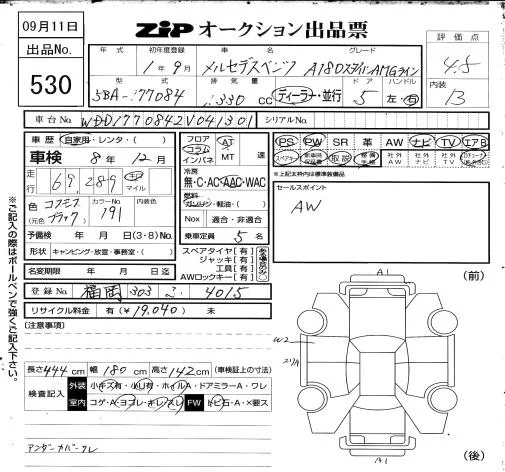 09月11日
ZIP オークション出品票
出品No.
530
年式 初年度登録 車名 グレード
1年9月 メルセデスベンツ A180 スタイル AMGライン
型式 排気量 ドア ハンドル
5BA-177084 1330 CC ディーラー・並行 5 左・右
評価点
4.5
内装
B
車台No. WDD1770842V041301 シリアルNo.
車歴 自家用・レンタ・( )
車検 8年12月
走行 69,289 キロ マイル
色 コスモスブラック (元色 ) カラーNo. 191 内装色
予備検 年 月 日(3・8)No.
形状 キャンピング・放宣・事務室・( )
名変期限 年 月 日迄
フロア コラム インパネ AT MT 速
冷房
無・C・AC・AAC・WAC
燃料
ガソリン・軽油・( )
Nox 適合・非適合
乗車定員 5名
スペアタイヤ[有]
ジャッキ[有]
工具[有]
AWロックキー[有]
PS PW SR 革 AW ナビ TV エアB
スペアキー 新車時保証書 取説 整備手帳 社外AW 社外ナビ 社外TV
*上記太枠内は標準装備品
セールスポイント
AW
登録No. 福岡 303 4015
リサイクル料金 有(¥19,040) 未
[注意事項]
長さ444cm 幅180cm 高さ142cm (車検証上の寸法)
検査記入 外装 小キズ有・小凹有・ホイルA・ドアミラーA・ワレ
室内 コゲ・A・ヨゴレ・キレ・スレ FW トビ石・A・X要ス
アンダーカバークレ
※ご記入の際はボールペンで強くご記入下さい。
A1
(前)
W2
A1
(後)